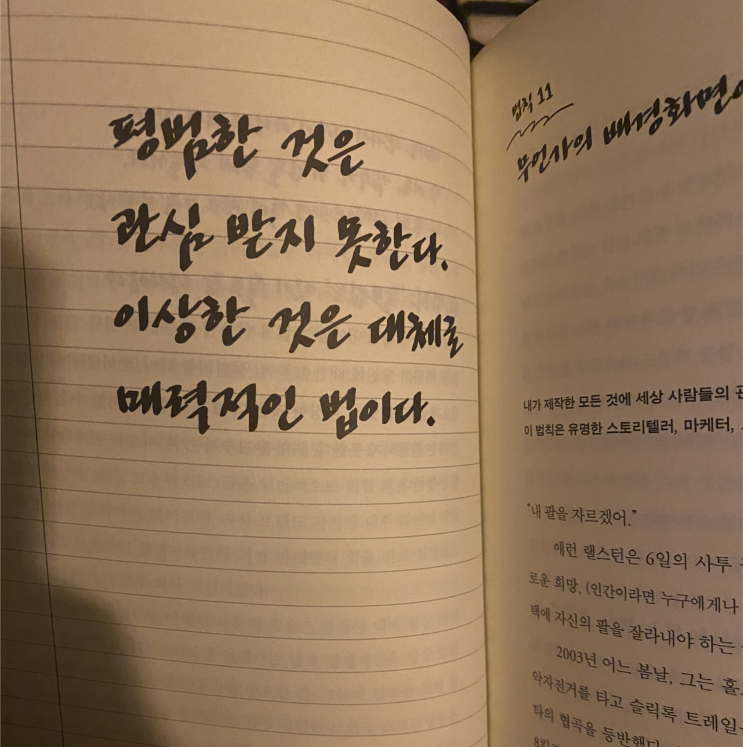 평범한 것은
관심 받지 못한다.
이상한 것은 대체로
매력적인 법이다.
법칙 11
무언가의 배경화면이
내가 제작한 모든 것에 세상 사람들의
이 법칙은 유명한 스토리텔러, 마케터,
“내 팔을 자르겠어.”
애런 랠스턴은 6일의 사투
로운 희망, (인간이라면 누구에게나
택에 자신의 팔을 잘라내야 하는
2003년 어느 봄날, 그는 홀
악자전거를 타고 슬릭록 트레일
타의 협곡을 등반했다.